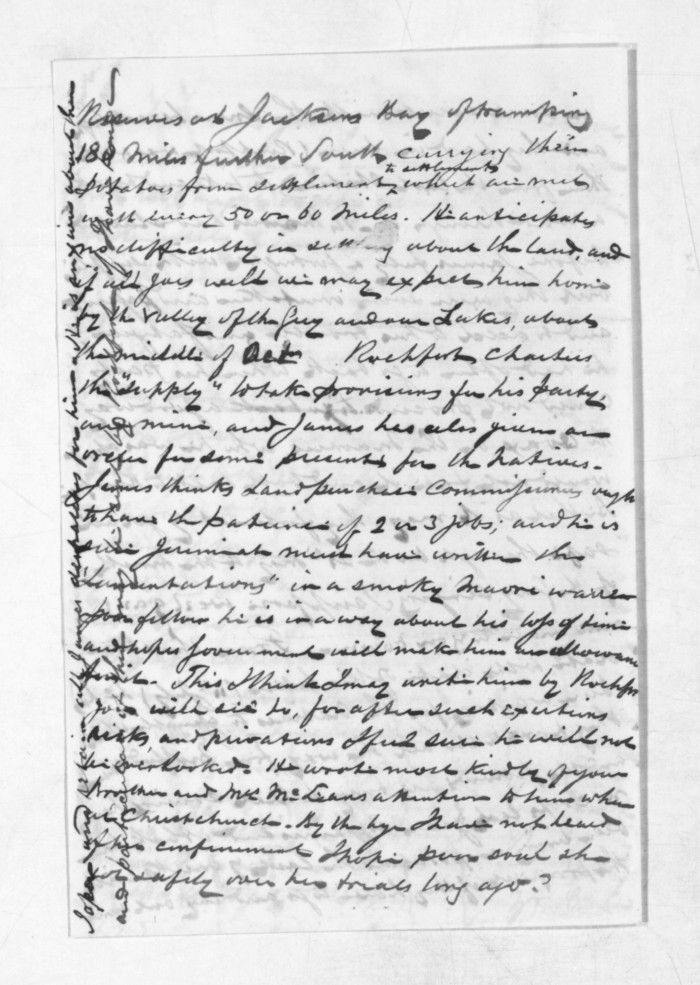 Reserves at Jacksons Bay of tramping
180 miles further South carrying their
potatoes from settlement to settlement which are met
with every 50 or 60 miles. He anticipates
no difficulty in settling about the land, and
if all goes well we may expect him home
by the valley of the Grey and our Lakes, about
the middle of Oct. Rochfort charters
the "Supply" to take provisions for his party,
and mine, and James has also given an
order for some presents for the Natives.
James thinks Land purchase Commissioners ought
to have the patience of 2 or 3 Jobs; and he is
sure Jeremiah must have written the
"Lamentations" in a smoky Maori warree
poor fellow he is in a way about his loss of time
and hopes Government will make him an allowance
for it. This I think I may write him by Rochfort
you will see to, for after such exertions
risks, and privations I feel sure he will not
be overlooked. He wrote most kindly of your
Brother and Mr McLeans attention to him when
at Christchurch. By the bye I have not heard
of her confinement I hope poor soul she
got safely over her trials long ago?
and